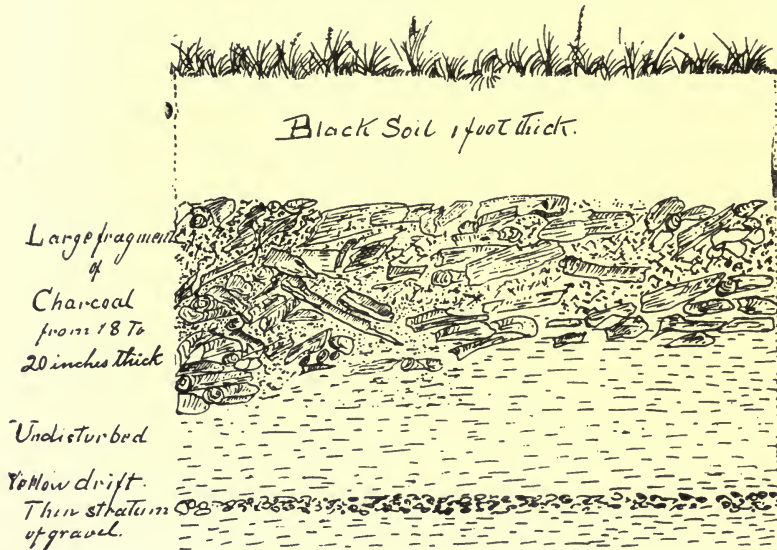 Black Soil 1 foot thick.
Large fragment
of
Charcoal
from 18 to
20 inches thick
Undisturbed
Yellow drift.
Thin stratum
of gravel.